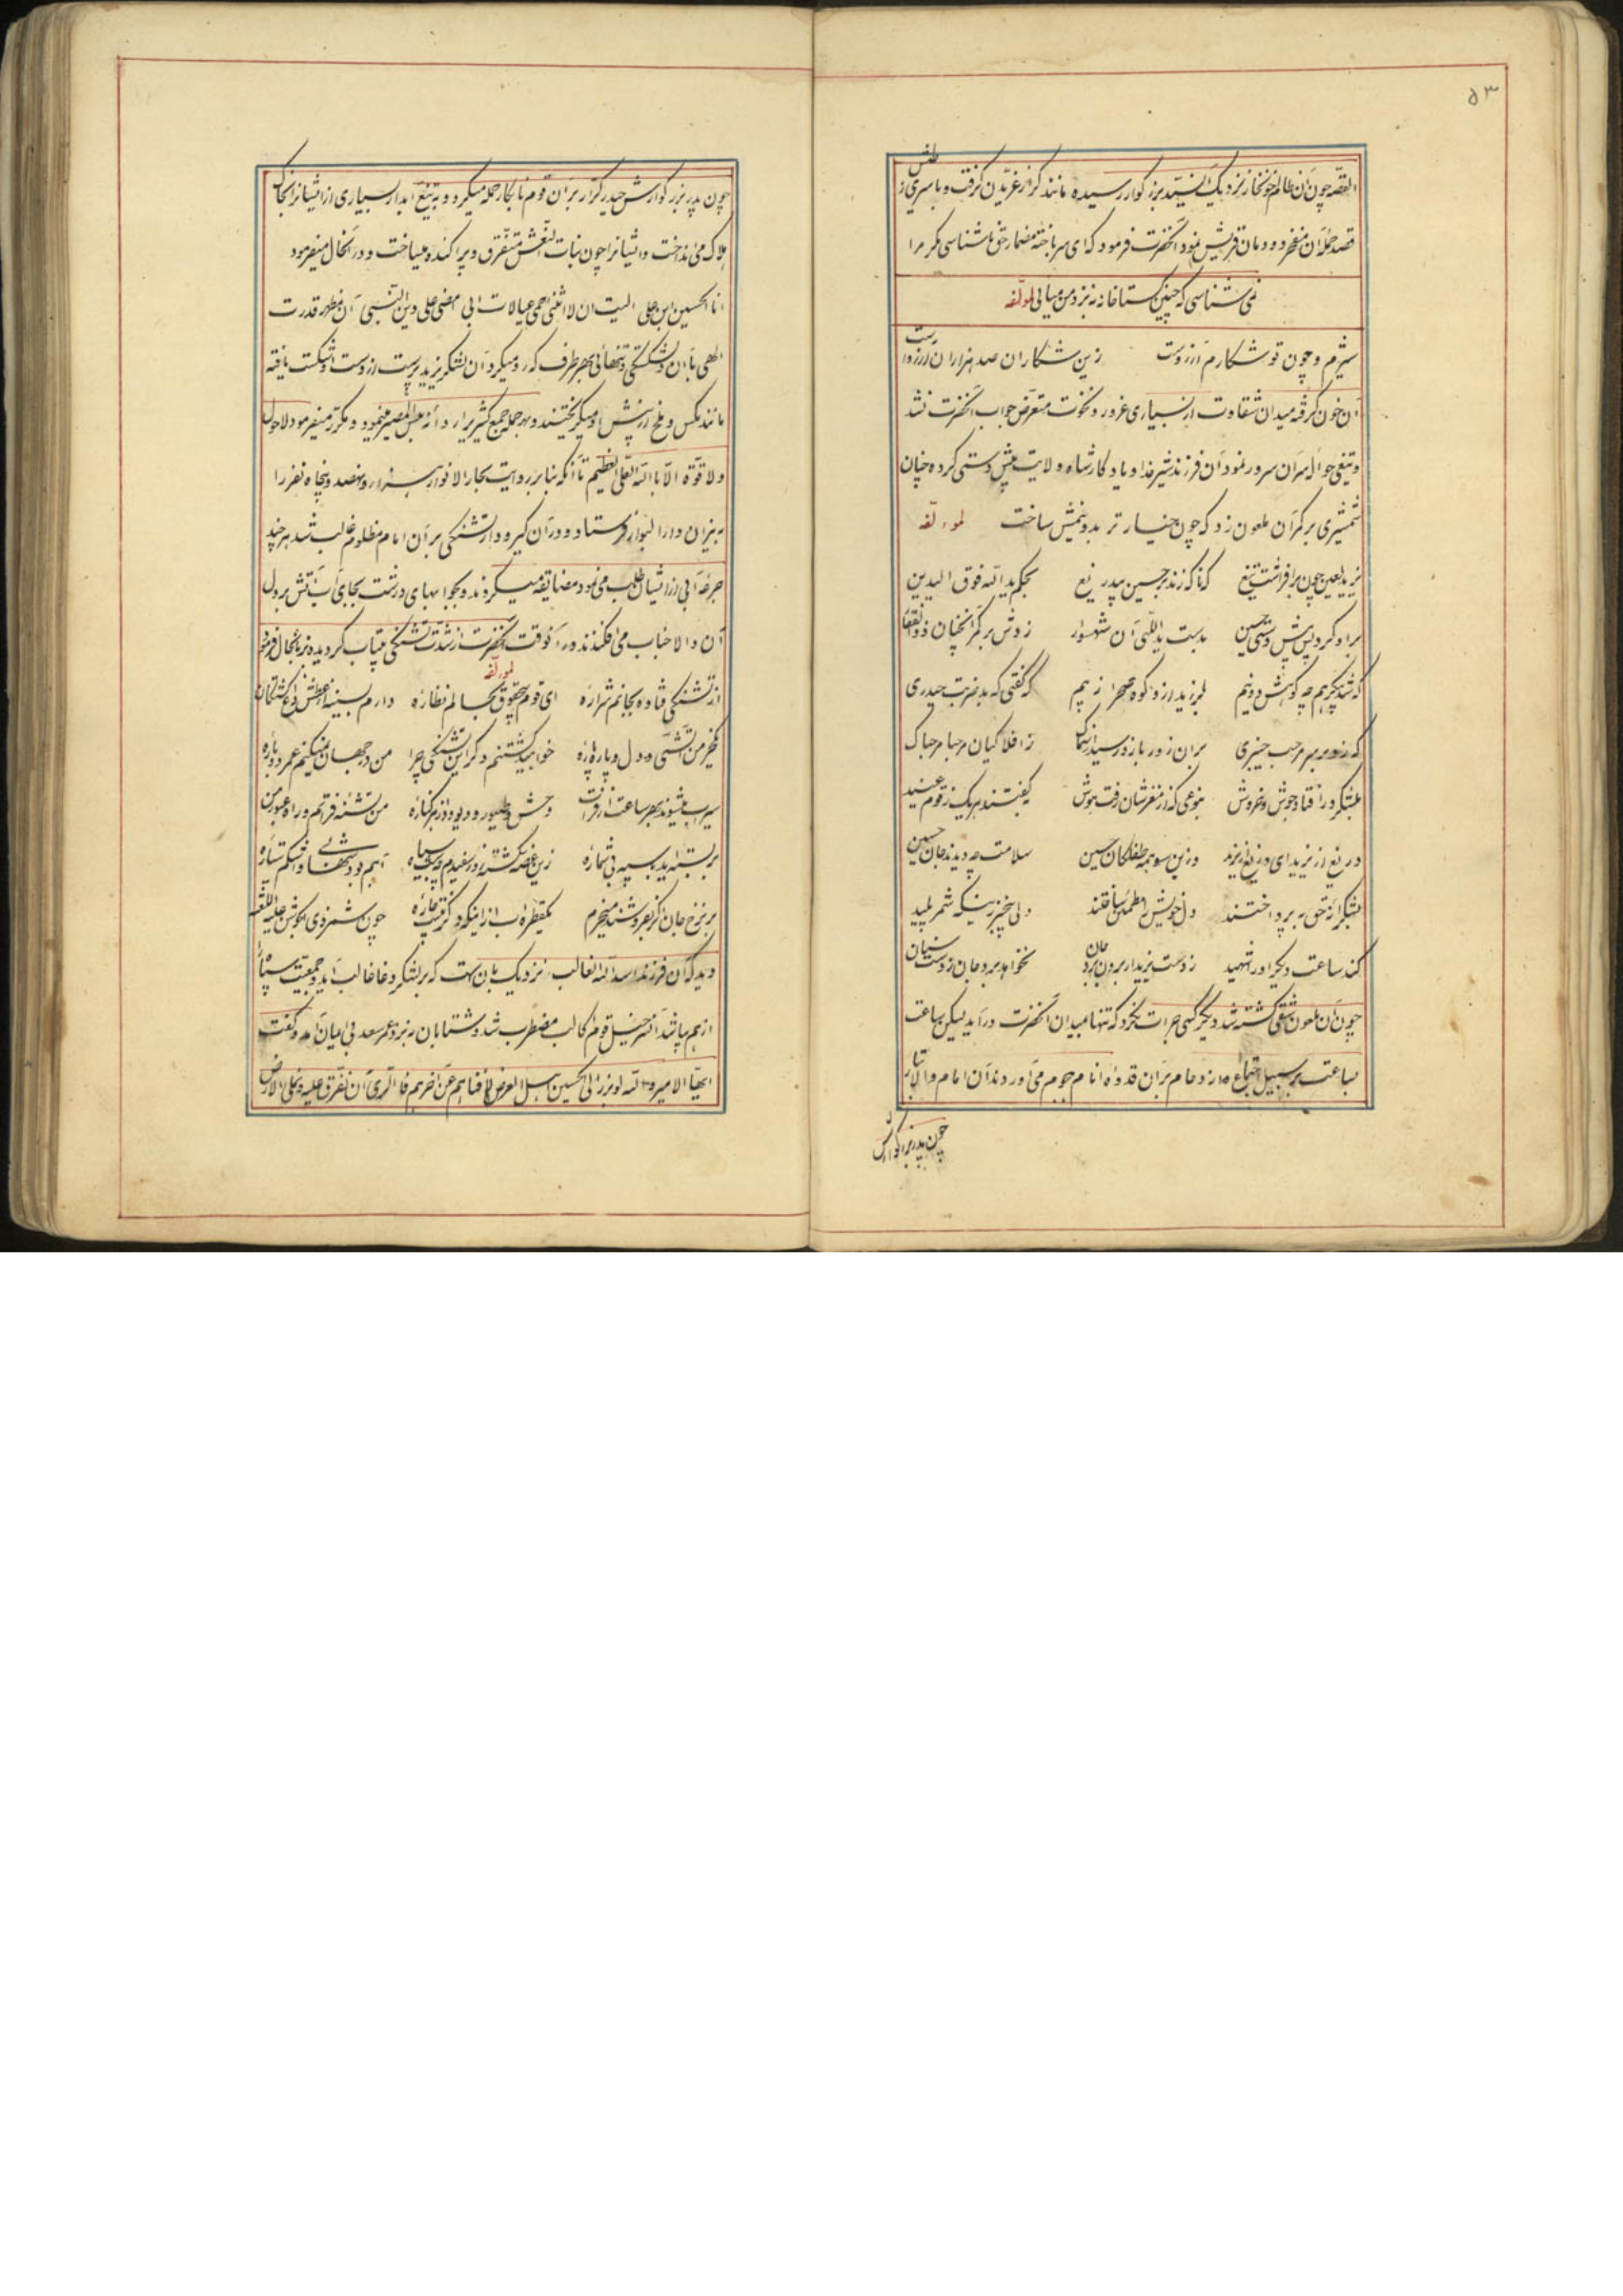 ۵۳
القصّه چون آن ظالم خونخوار نزدیک آن سیّد بزرکوار رسیده مانند کراز غرّیدن کرفت و با سری از طیش
قصد حمله آن مفخر دودمان قریش نمود آنحضرت فرمود که ای سرباخته مضمار حق ناشناسی مکر مرا
نمی شناسی که چنین کستاخانه به نزد من میائی لمؤلفه
شیرم و چون تو شکارم آرزوست زین شکاران صد هزاران آرزوست
آن خون کرفته میدان شقاوت از بسیاری غرور و نخوت متعرّض جواب آنحضرت نشد
و تیغی حواله سر آن سرور نمود آن فرزند شیر خدا و یادکار شاه ولایت پیش دستی کرده چنان
شمشیری بر کمر آن ملعون زد که چون خیار تر بدو نیمش ساخت لمؤلفه
یزید لعین چون برافراشت تیغ که تا که زند بر حسین بیدریغ بحکم یدالله فوق ایدیهن
بر او کرد پس پیش دستی حسین بدست یداللّهی آن شهسوار زدش بر کمر آنچنان ذوالفقار
که شد پیکر همچو کوهش دو نیم بلرزید ازو کوه و صحرا ز بیم که کفتی که بد ضربت حیدری
که زد بر سر مرحب خیبری بران زور بازو رسید از سماک ز افلاکیان مرحبا مرحباک
بلشکر در افتاد جوش و خروش بنوعی که از مغزشان رفت هوش بکفتند هر یک ز قوم عنید
دریغ از یزید ای دریغ از یزید وزین سو همه طفلکان حسین سلامت چو دیدند جان حسین
بشکرانه حق بپرداختند دل خویش را مطمئن ساختند ولی بیخبر زینکه شمر پلید
کند ساعت دیکر او را شهید ز دست یزید ار برون برد جان نخواهد برد جان ز دست سنان
چون آن ملعون شقی کشته شد دیکر کسی جرات نکرد که تنها بمیدان آنحضرت درآید لیکن ساعت
بساعت بر سبیل اجتماع و ازدحام بر آن قدوه انام هجوم می آوردند آن امام والا تبار
چون پدر بزرکوارش
چون پدر بزرکوارش حیدر کرّار بر آن قوم نابکار حمله میکرد و به تیغ آبدار بسیاری از ایشانرا بخاک
هلاک می انداخت و ایشانرا چون بنات النّعش متفرّق و پراکنده میساخت و در آنحال میفرمود
انا الحسین ابن علی الیت ان لا انثنی احمی عیالات ابی امضی علی دین النّبی آن مظهر قدرت
الهی با آن دلشکستکی و تنهائی بهر طرف که رو میکرد آن لشکر یزید پرست از دست او شکست یافته
مانند مکس و ملخ از پیش او میکریختند و بهر حمله جمع کثیر برا روانه بئس المصیر مینمود و مکرّر میفرمود لاحول
ولا قوّة الّا بالله العلی العظیم تا آنکه بنا بر روایت بحار الانوار هزار و نهصد و پنجاه نفر را
به نیزان دار البوار فرستاد و در آن کیرو دار تشنکی بر آن امام مظلوم غالب شد هر چند
جرعه آبی از ایشان طلب می نمود مضایقه میکردند و بجوابهای درشت بجای آب آتش بر دل
آن والا جناب می افکندند در آنوقت آنحضرت از شدّت تشنکی بیتاب کردیده بزبانحال فرمود
لمؤلفه
از تشنکی فتاده بجانم شراره ای قوم بیحقوق بحالم نظاره دارم بسینه از عطش داغ کشتکان
غیر من آتشی و دل و پاره پاره خواهید کشتنم دکر این تشنکی چرا من در جهان نمیکنم عمر دوباره
سیراب میشوند بهر ساعت از فرات وحش و طیور و دیو و دد از هر کناره من تشنه فراتم و راه عبور من
بر بسته اید بسپه بی شماره زین غصّه کشته روز سفیدم چو شب سیاه آهم بود شهاب و اشکم ستاره
بر نرخ جان اکر بفروشند میخرم یکقطره آب ازینکه دکر نیست چاره چون شمر ذی الجوشن علیه اللّعنه
دید که آن فرزند اسد الله الغالب نزدیک بان است که بر لشکر دغا غالب آید و جمعیّت سپاه
از هم بپاشد آن سرخیل قوم کالب مضطرب شد و شتابان به نزد عمر سعد بی ایمان آمد و کفت
ایّها الامیر والله لو برز الی الحسین اهل الارض لافناهم عن آخرهم فالرّای ان نفترق علیه و نملئ الارض